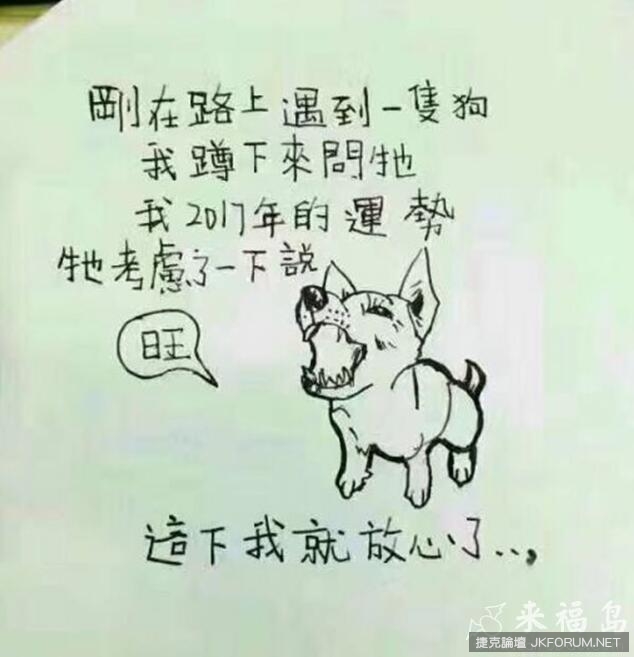 剛在路上遇到一隻狗
我蹲下來問牠
我2017年的運勢
牠考慮了一下說
旺
這下我就放心了...,
来福岛
捷克論壇 JKFORUM.NET